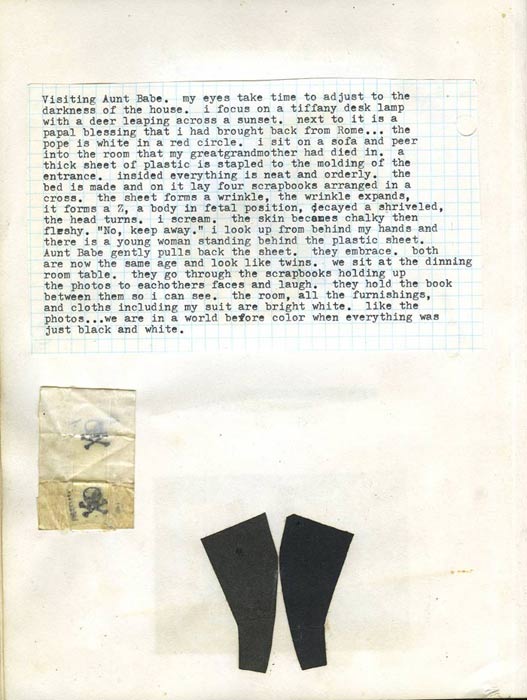 Visiting Aunt Babe.  my eyes take time to adjust to the
darkness of the house.  i focus on a tiffany desk lamp
with a deer leaping across a sunset.  next to it is a
papal blessing that i had brought back from Rome... the
pope is white in a red circle.  i sit on a sofa and peer
into the room that my greatgrandmother had died in.  a
thick sheet of plastic is stapled to the molding of the
entrance.  insided everything is neat and orderly.  the
bed is made and on it lay four scrapbooks arranged in a
cross.  the sheet forms a wrinkle, the wrinkle expands,
it forms a Z, a body in fetal position, decayed a shriveled,
the head turns.  i scream.  the skin becames chalky then
fleshy. "No, keep away." i look up from behind my hands and
there is a young woman standing behind the plastic sheet.
Aunt Babe gently pulls back the sheet.  they embrace.  both
are now the same age and look like twins.  we sit at the dinning
room table.  they go through the scrapbooks holding up
the photos to eachothers faces and laugh.  they hold the book
between them so i can see.  the room, all the furnishings,
and cloths including my suit are bright white.  like the
photos...we are in a world before color when everything was
just black and white.